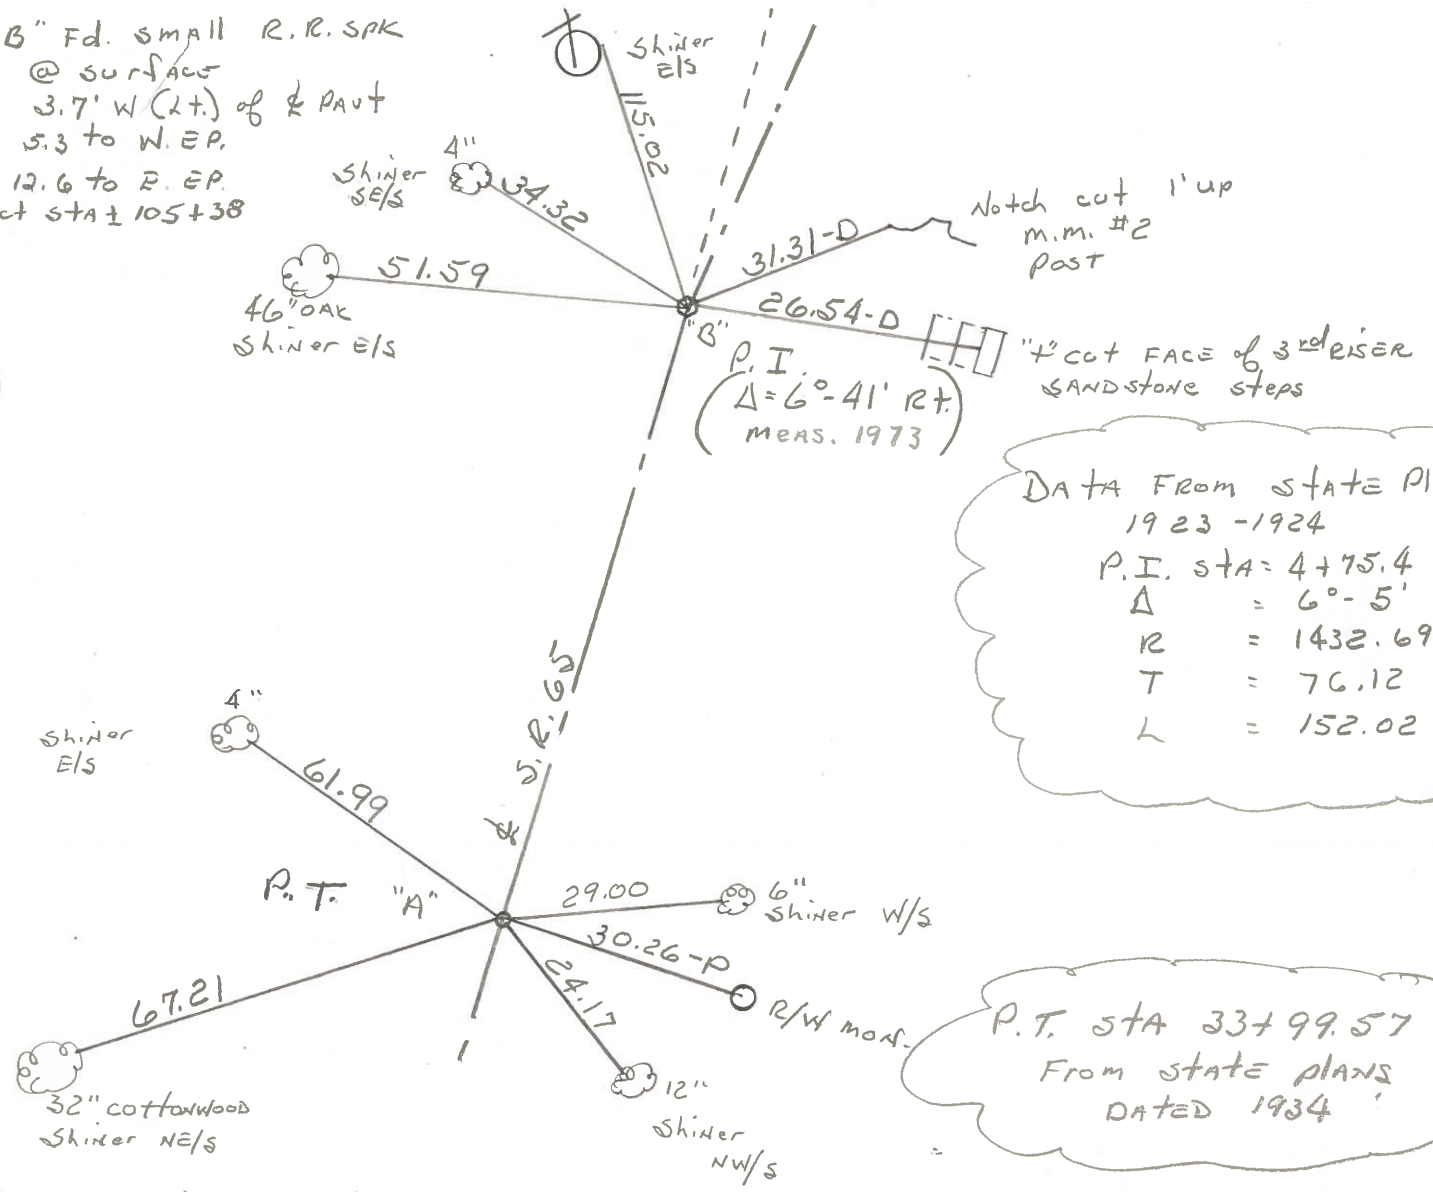 B" Fd. small R.R. SPK
@ surface
3.7' W (Lt.) of ℄ PAVt
5.3 to W. EP.
12.6 to E. EP.
ct stA ± 105+38
Shiner
E/S
115.02
4"
Shiner
SE/S
34.32
51.59
46" OAK
Shiner E/S
31.31-D
Notch cut 1' up
m.m. #2
Post
26.54-D
"+" cut FACE of 3rd RISER
SANDSTONE steps
"B"
P.I.
Δ=6°-41' Rt.
meas. 1973
DATA FROM STATE Pl
1923-1924
P.I. stA = 4+75.4
Δ = 6°-5'
R = 1432.69
T = 76.12
L = 152.02
℄ S.R. 65
4"
Shiner
E/S
61.99
P.T. "A"
29.00
6"
Shiner W/S
30.26-P
R/W mon.
24.17
12"
Shiner
NW/S
67.21
32" cottonwood
Shiner NE/S
P.T. stA 33+99.57
From state plans
DATED 1934